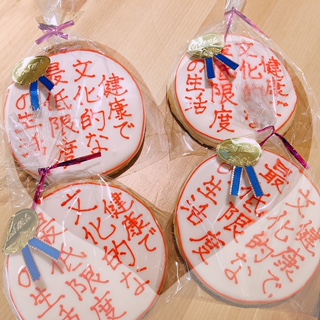 健康で
文化的な
最低限度
の生活
健康で
文化的な
最低限度
の生活
健康で
文化的な
最低限度
の生活
健康で
文化的な
最低限度
の生活